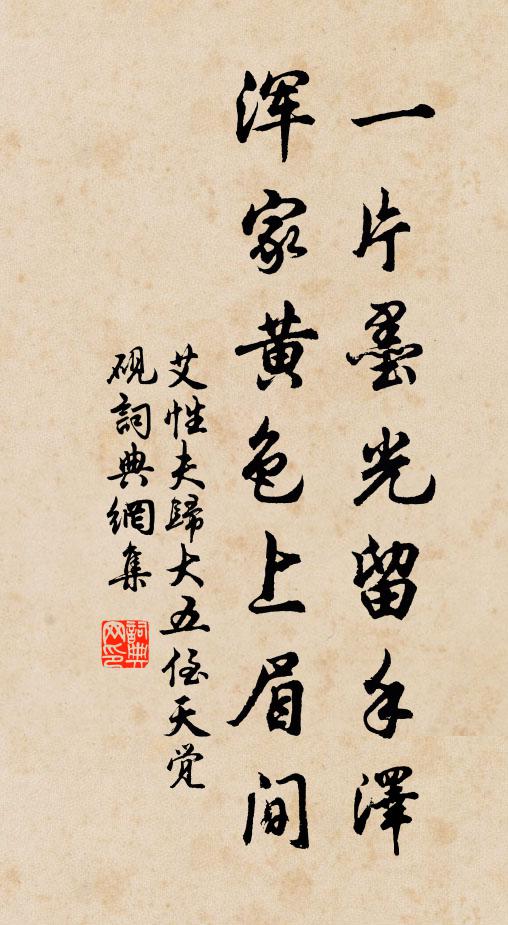 一片墨光留手澤
浑家黄色上眉间
艾性夫歸大五侄天觉
硯詞典網集
詞典網印